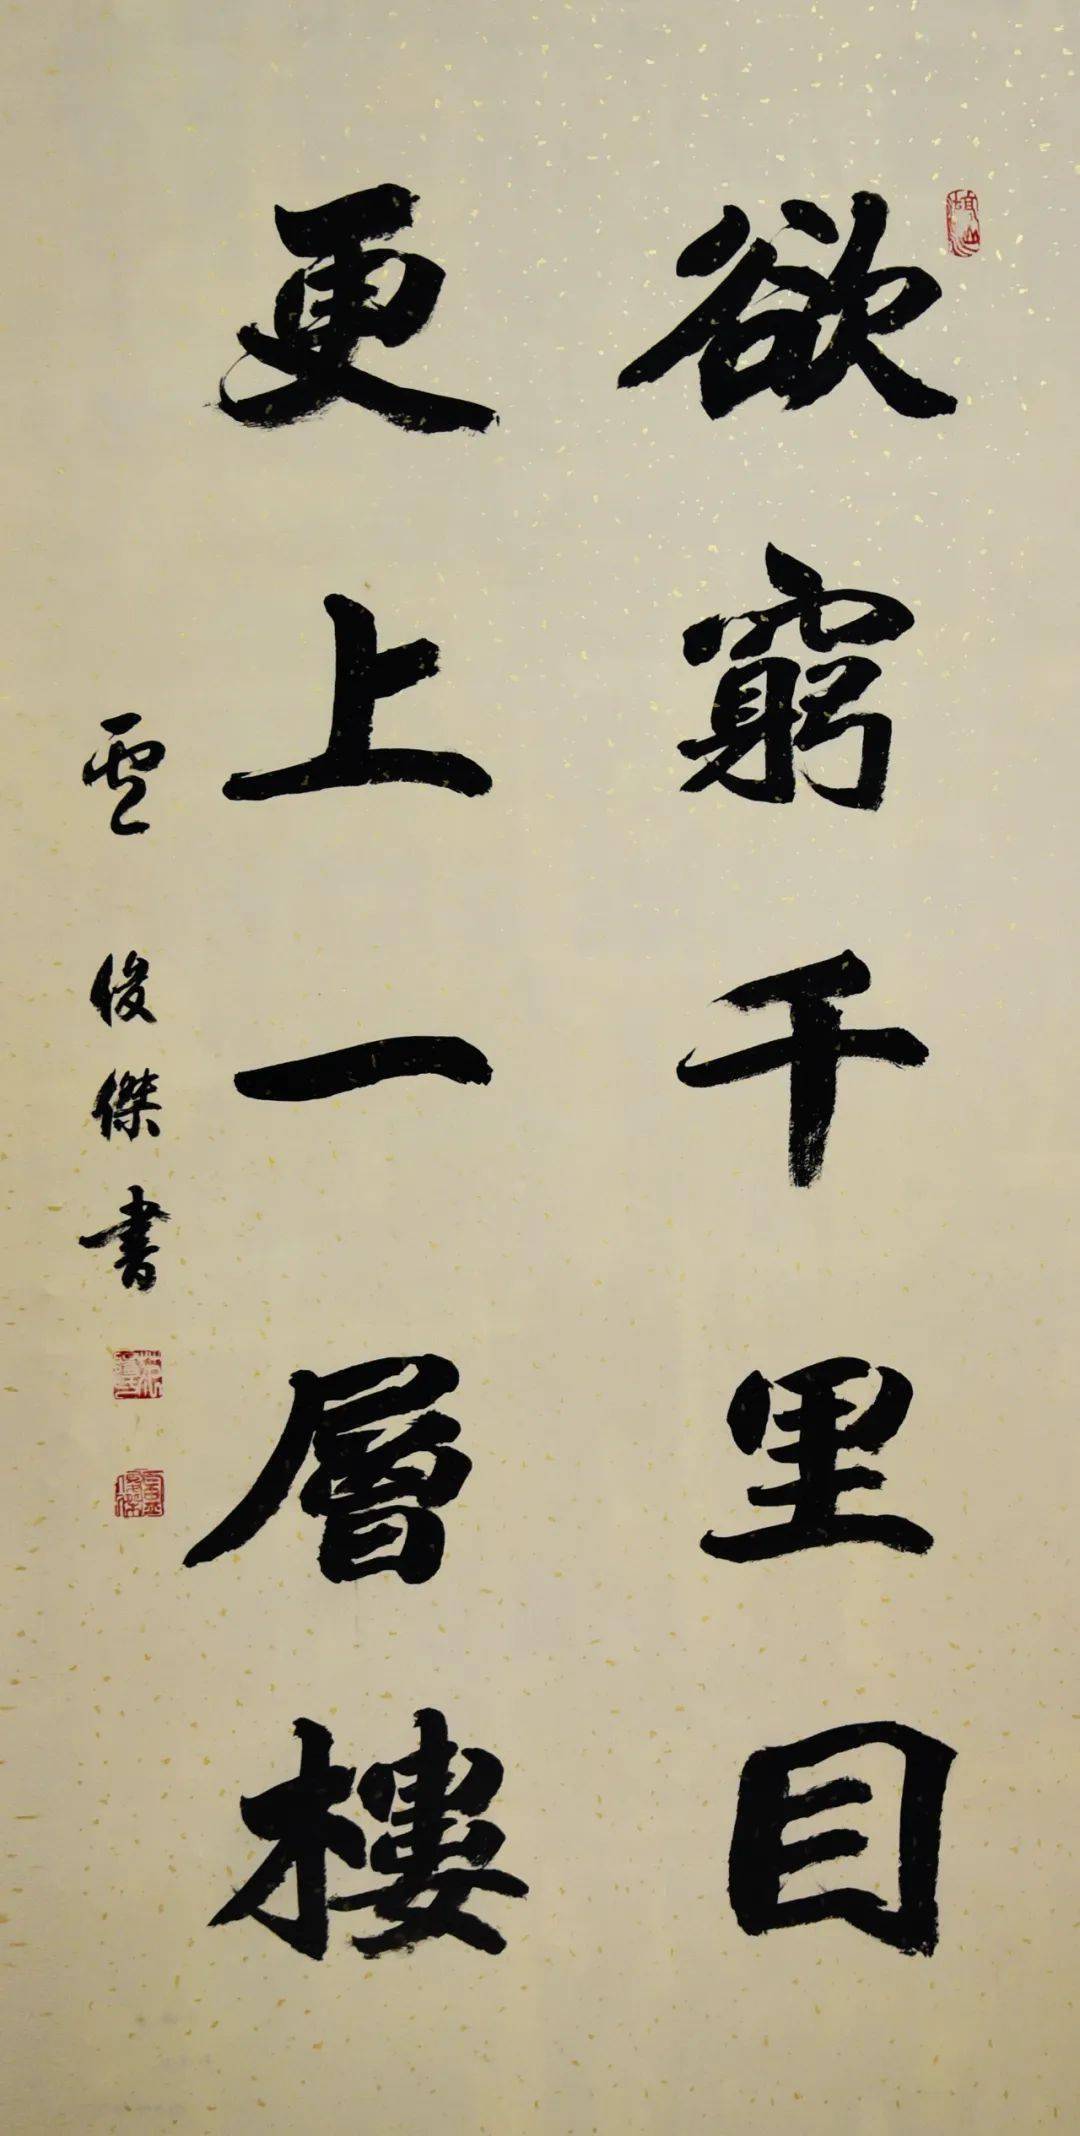 欲窮千里目
更上一層樓
俊傑書